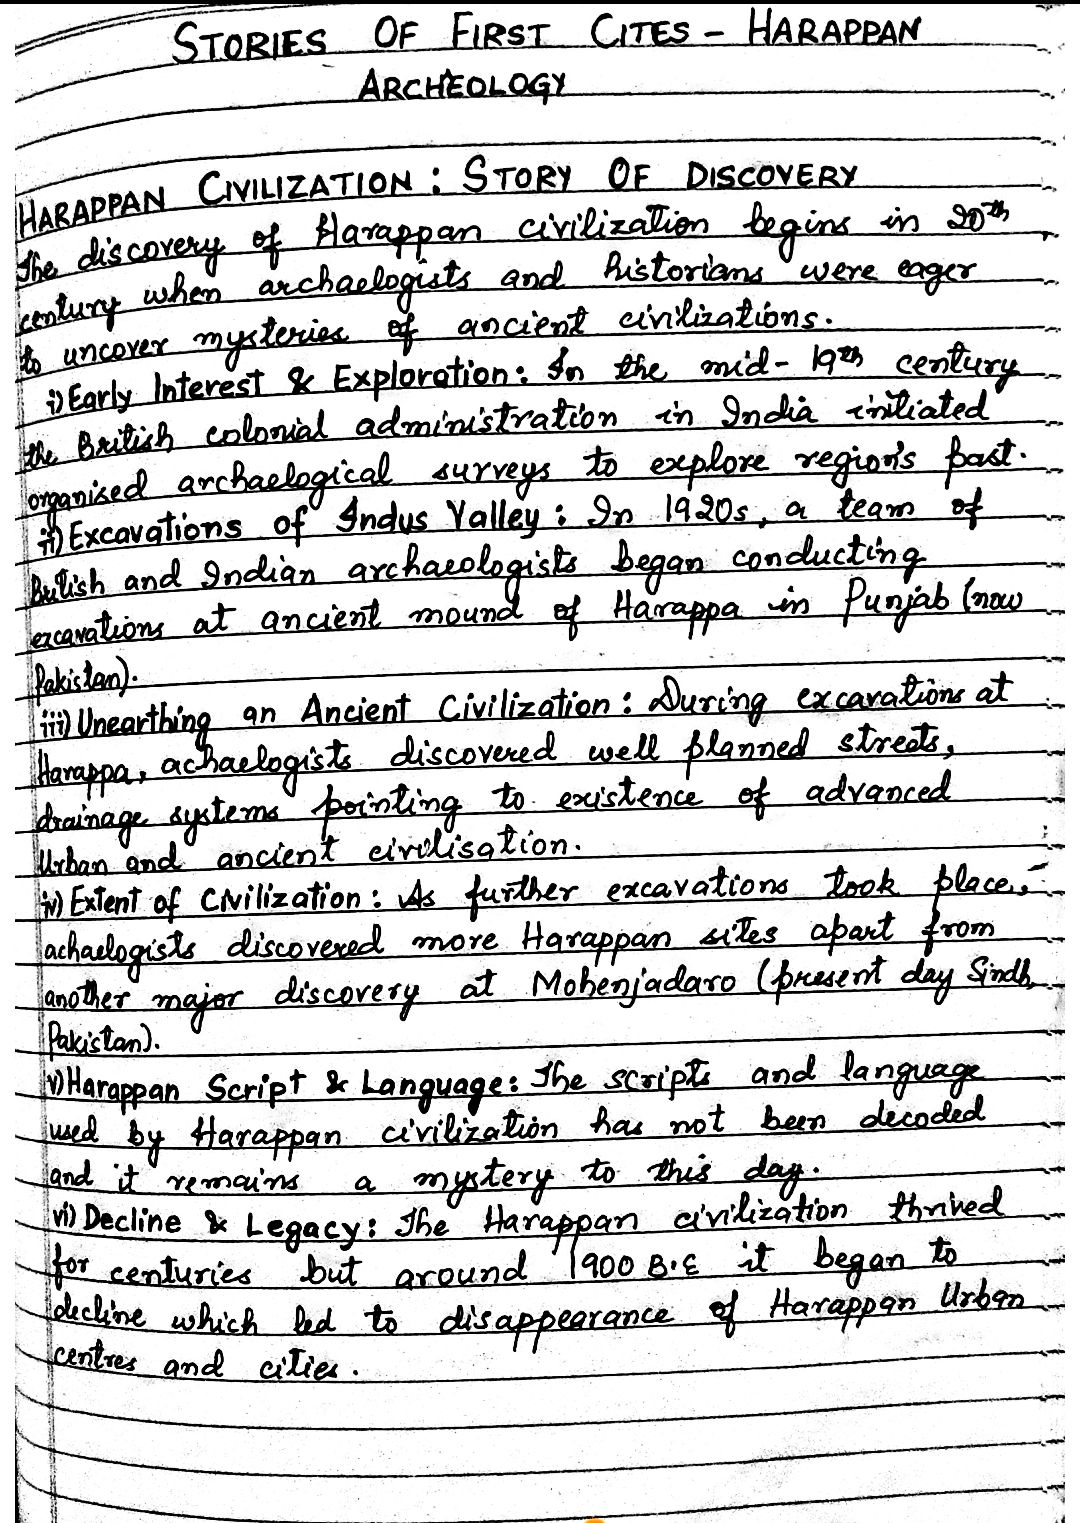 STORIES OF FIRST CITES - HARAPPAN
ARCHEOLOGY
HARAPPAN CIVILIZATION : STORY OF DISCOVERY
The discovery of Harappan civilization begins in 20th
century when archaelogists and historians were eager
to uncover mysteries of ancient civilizations.
i) Early Interest & Exploration: In the mid- 19th century
the British colonial administration in India initiated
organised archaelogical surveys to explore region's past.
ii) Excavations of Indus Valley : In 1920s, a team of
British and Indian archaeologists began conducting
excavations at ancient mound of Harappa in Punjab (now
Pakistan).
iii) Unearthing an Ancient Civilization : During excavations at
Harappa, achaelogists discovered well planned streets,
drainage systems pointing to existence of advanced
Urban and ancient civilisation.
iv) Extent of Civilization : As further excavations took place,
achaelogists discovered more Harappan sites apart from
another major discovery at Mohenjadaro (present day Sindh,
Pakistan).
v) Harappan Script & Language: The scripts and language
used by Harappan civilization has not been decoded
and it remains a mystery to this day.
vi) Decline & Legacy: The Harappan civilization thrived
for centuries but around 1900 B.E it began to
decline which led to disappearance of Harappan Urban
centres and cities.